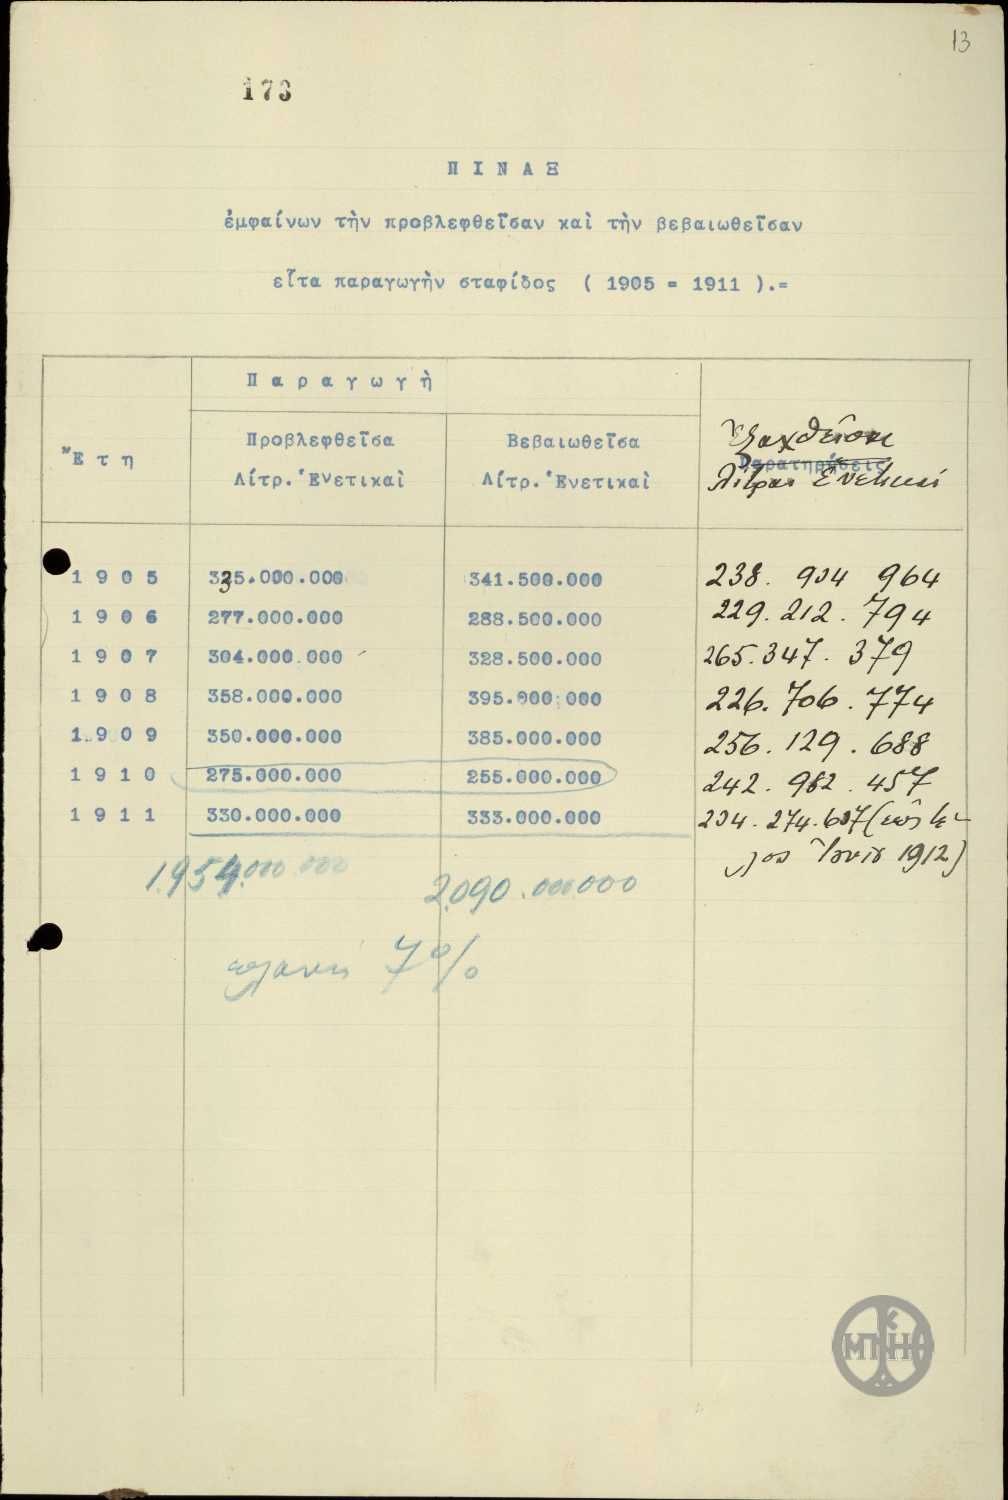 13
173
ΠΙΝΑΞ
ἐμφαίνων τὴν προβλεφθεῖσαν καὶ τὴν βεβαιωθεῖσαν
εἶτα παραγωγὴν σταφίδος ( 1905 = 1911 ).=
Παραγωγὴ
Ἔτη
Προβλεφθεῖσα Βεβαιωθεῖσα Ἐξαχθεῖσαι
Παρατηρήσεις
Λίτρ. Ἐνετικαὶ Λίτρ. Ἐνετικαὶ Λίτραι Ἐνετικαί
1905 335.000.000 341.500.000 238. 904 964
1906 277.000.000 288.500.000 229. 212. 794
1907 304.000.000 328.500.000 265. 347. 379
1908 358.000.000 395.000.000 226. 706. 774
1909 350.000.000 385.000.000 256. 129. 688
1910 275.000.000 255.000.000 242. 982. 457
1911 330.000.000 333.000.000 234. 274. 607 (ἕως
Ἰουν 1912)
1.954.000.000 2.090.000.000
7%
ΜΠΚΗ